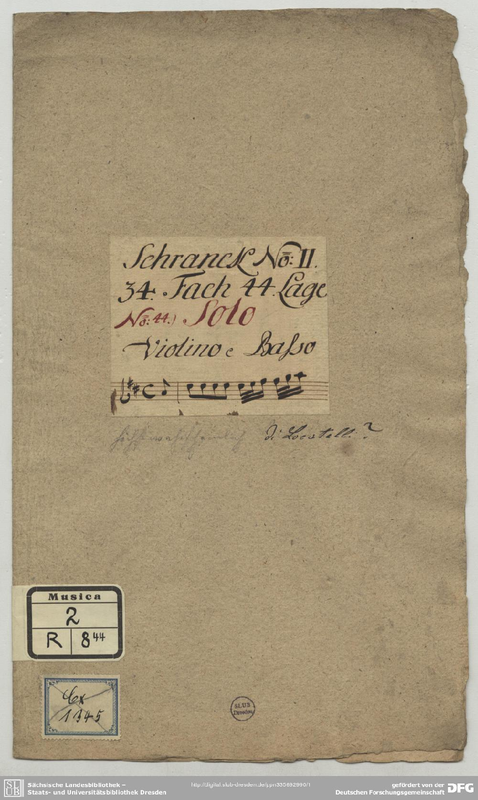 Schranck No: II.
34. Fach 44. Lage
No: 44.) Solo
Violino e Basso
di Locatelli?
Musica
2
R 8 44
Cx
1345
SLUB
Dresden
SLUB
Sächsische Landesbibliothek –
Staats- und Universitätsbibliothek Dresden
gefördert von der
Deutschen Forschungsgemeinschaft
DFG